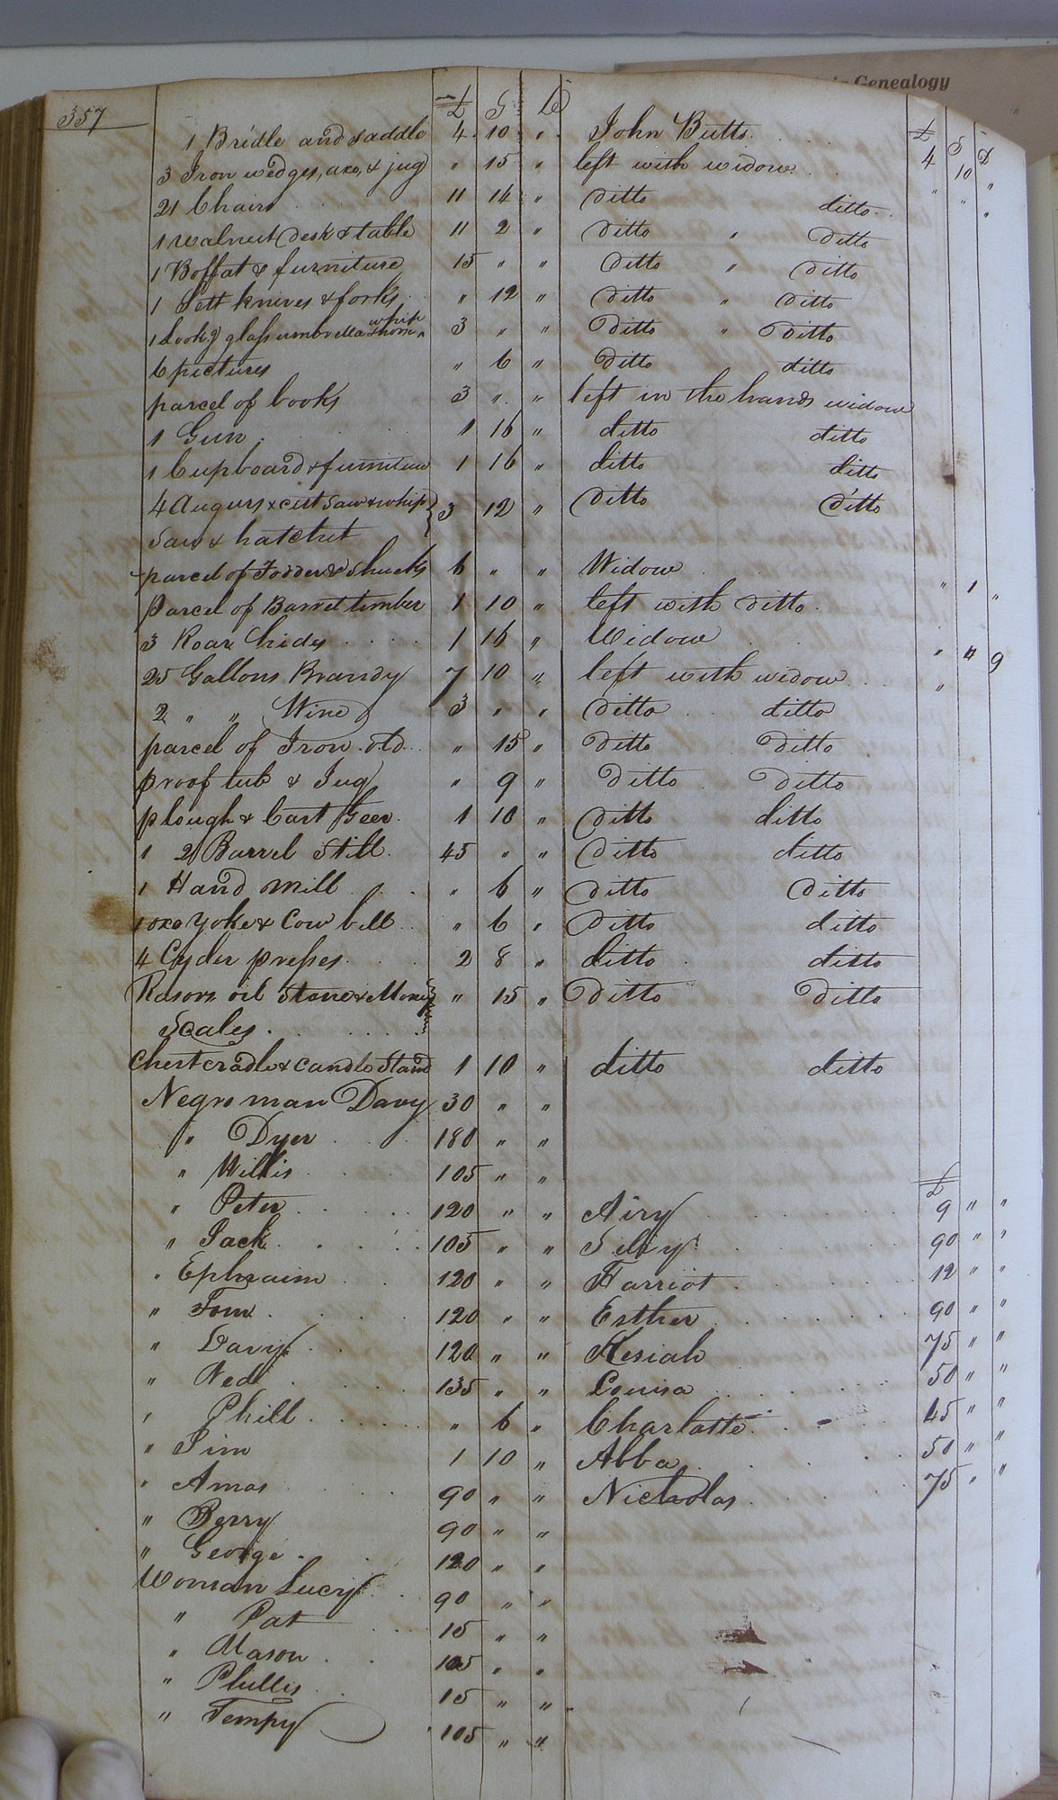 Genealogy
357
£ S D
£ S D
1 Bridle and saddle 4 10 " John Butts 4 10 "
3 Iron wedges, axe, & jug " 15 " left with widow " " "
21 Chairs 11 14 " ditto ditto
1 walnut Desk & table 11 2 " Ditto " Ditto
1 Boffat & furniture 15 " " Ditto " Ditto
1 Sett knives & forks " 12 " Ditto " Ditto
1 Look.g glass umbrella whip 3 " " Ditto " Ditto
6 pictures " 6 " Ditto ditto
parcel of books 3 " " left in the hands widow
1 Gun 1 16 " ditto ditto
1 Cupboard & furniture 1 16 " ditto ditto
4 Augurs x cut Saw & whip 3 12 " Ditto Ditto
Saw & hatchet
parcel of Fodder & Shucks 6 " " Widow " 1 "
Parcel of Barrel timber 1 10 " left with ditto
3 Roar hides 1 16 " Widow " 11 9
25 Gallons Brandy 7 10 " left with widow "
2 " " Wine 3 " " Ditto ditto
parcel of Iron old " 15 " Ditto Ditto
proof tub & Jug " 9 " Ditto Ditto
plough & Cart Geer 1 10 " Ditto ditto
1 2 Barrel Still 45 " " Ditto ditto
1 Hand mill " 6 " Ditto Ditto
1 oxe Yoke & Cow bell " 6 " Ditto ditto
4 Cyder presses 2 8 " ditto ditto
Rasors oil Stone & Money " 15 " Ditto Ditto
Scales
Chest cradle & candle Stand 1 10 " ditto ditto
Negro man Davy 30 " "
" Dyer 180 " "
" Willis 105 " "
£
" Peter 120 " " Airy 9 " "
" Jack 105 " " Seliy 90 " "
" Ephraim 120 " " Harriot 12 " "
" Tom 120 " " Esther 90 " "
" Davy 120 " " Kesiah 75 " "
" Ned 135 " " Louisa 50 " "
" Phill " 6 " Charlotte 45 " "
" Jim 1 10 " Abba 50 " "
" Amos 90 " " Nicholas 75 " "
" Perry 90 " "
" George 120 " "
Woman Lucy 90 " "
" Pat 15 " "
" Mason 105 " "
" Phillis 15 " "
" Tempy 105 " "